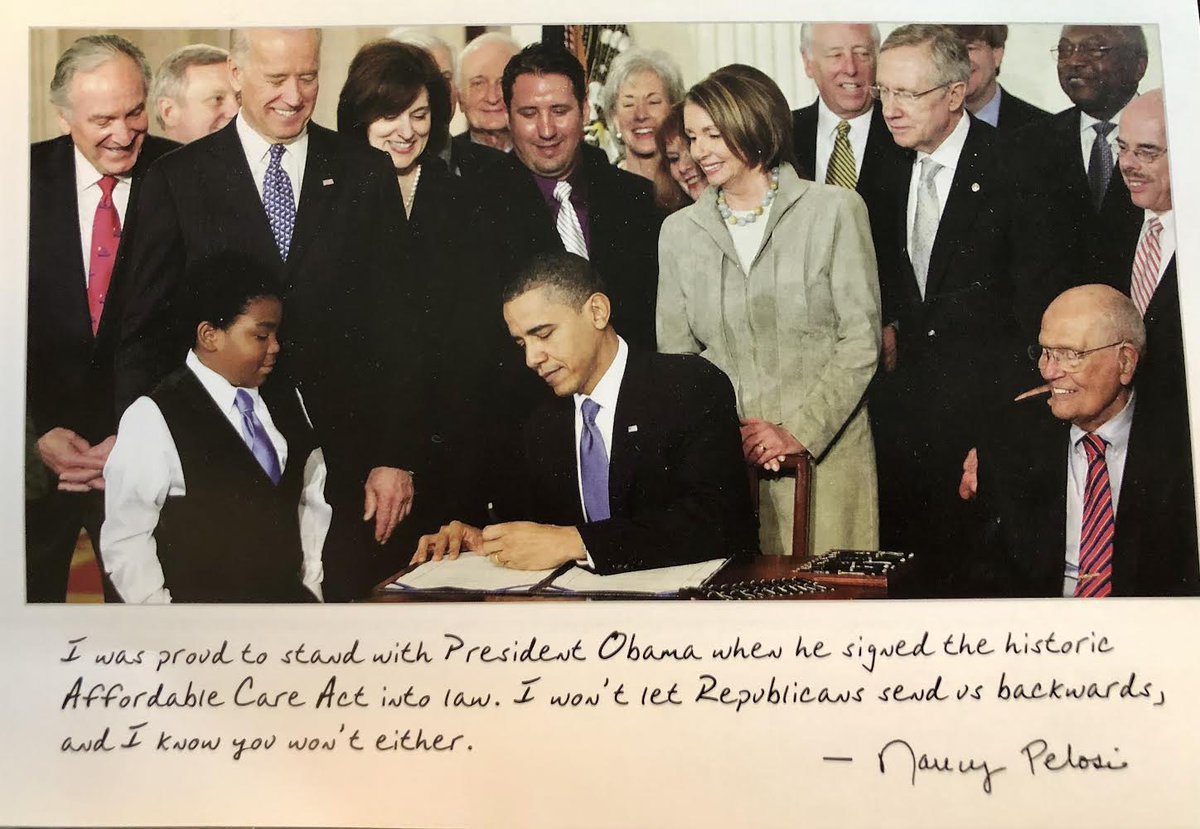 I was proud to stand with President Obama when he signed the historic
Affordable Care Act into law. I won't let Republicans send us backwards,
and I know you won't either.
— Nancy Pelosi